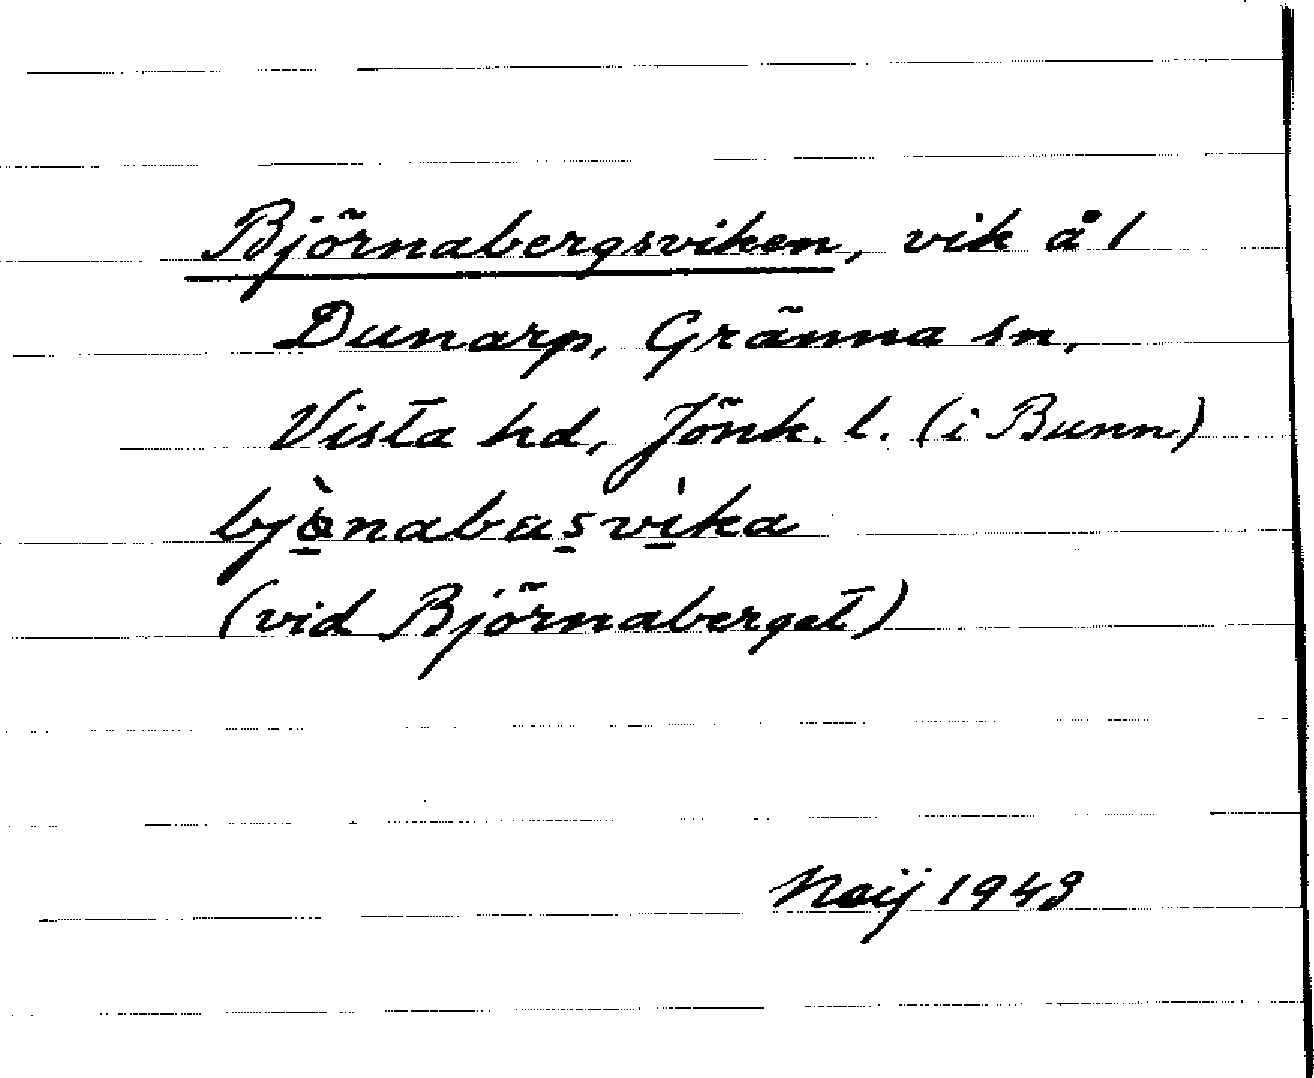 Björnabergsviken, vik å 1
Dunarp, Gränna sn,
Vista hd, Jönk. l. (i Bunn)
(vid Björnaberget)
1943